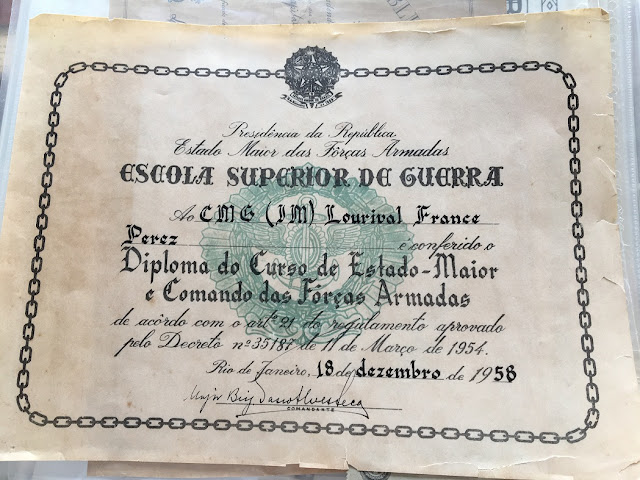 Presidência da República
Estado Maior das Fôrças Armadas
ESCOLA SUPERIOR DE GUERRA
Ao CMG (IM) Lourival France
Perez e conferido o
Diploma do Curso de Estado-Maior
e Comando das Fôrças Armadas
de acôrdo com o artº 21 do regulamento aprovado
pelo Decreto nº 35187 de 11 de Março de 1954.
Rio de Janeiro, 18 de dezembro de 1958
Major Brig
COMANDANTE